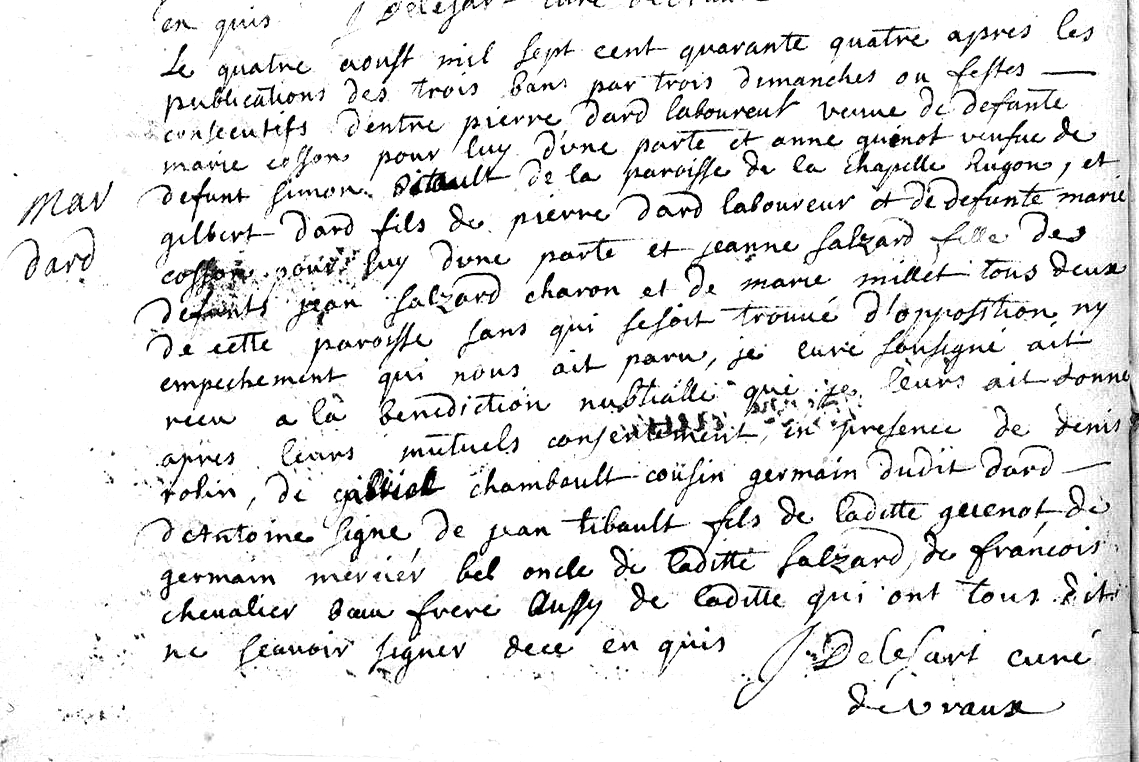 en quis Delesart curé devraux
Le quatre aoust mil sept cent quarante quatre apres les
publications des trois bans par trois dimanches ou festes
consecutifs dentre pierre dard laboureur veuve de defante
marie cosson pour luy d'une parte et anne quenot veufue de
defunt simon tibault de la paroisse de la chapelle hugon, et
gilbert dard fils de pierre dard laboureur et de defunte marie
cosson pour luy dune parte et jeanne salzard fille des
defunts jean salzard charon et de marie millet tous deux
de cette paroisse sans qui sesoit trouvé d'opposition ny
empechement qui nous ait paru, je curé sousigné ait
receu a la benediction nubtialle que je leurs ait donné
apres leurs mutuels consentement, en presence de denis
robin, de gabriel chambault cousin germain dudit dard
de Antoine signe de jean tibault fils de laditte quenot, de
germain mercier bel oncle de laditte salzard, de françois
chevalier beau frere aussy de laditte qui ont tous dit
ne scavoir signer dece en quis
Delesart curé
dévraux
mar
dard